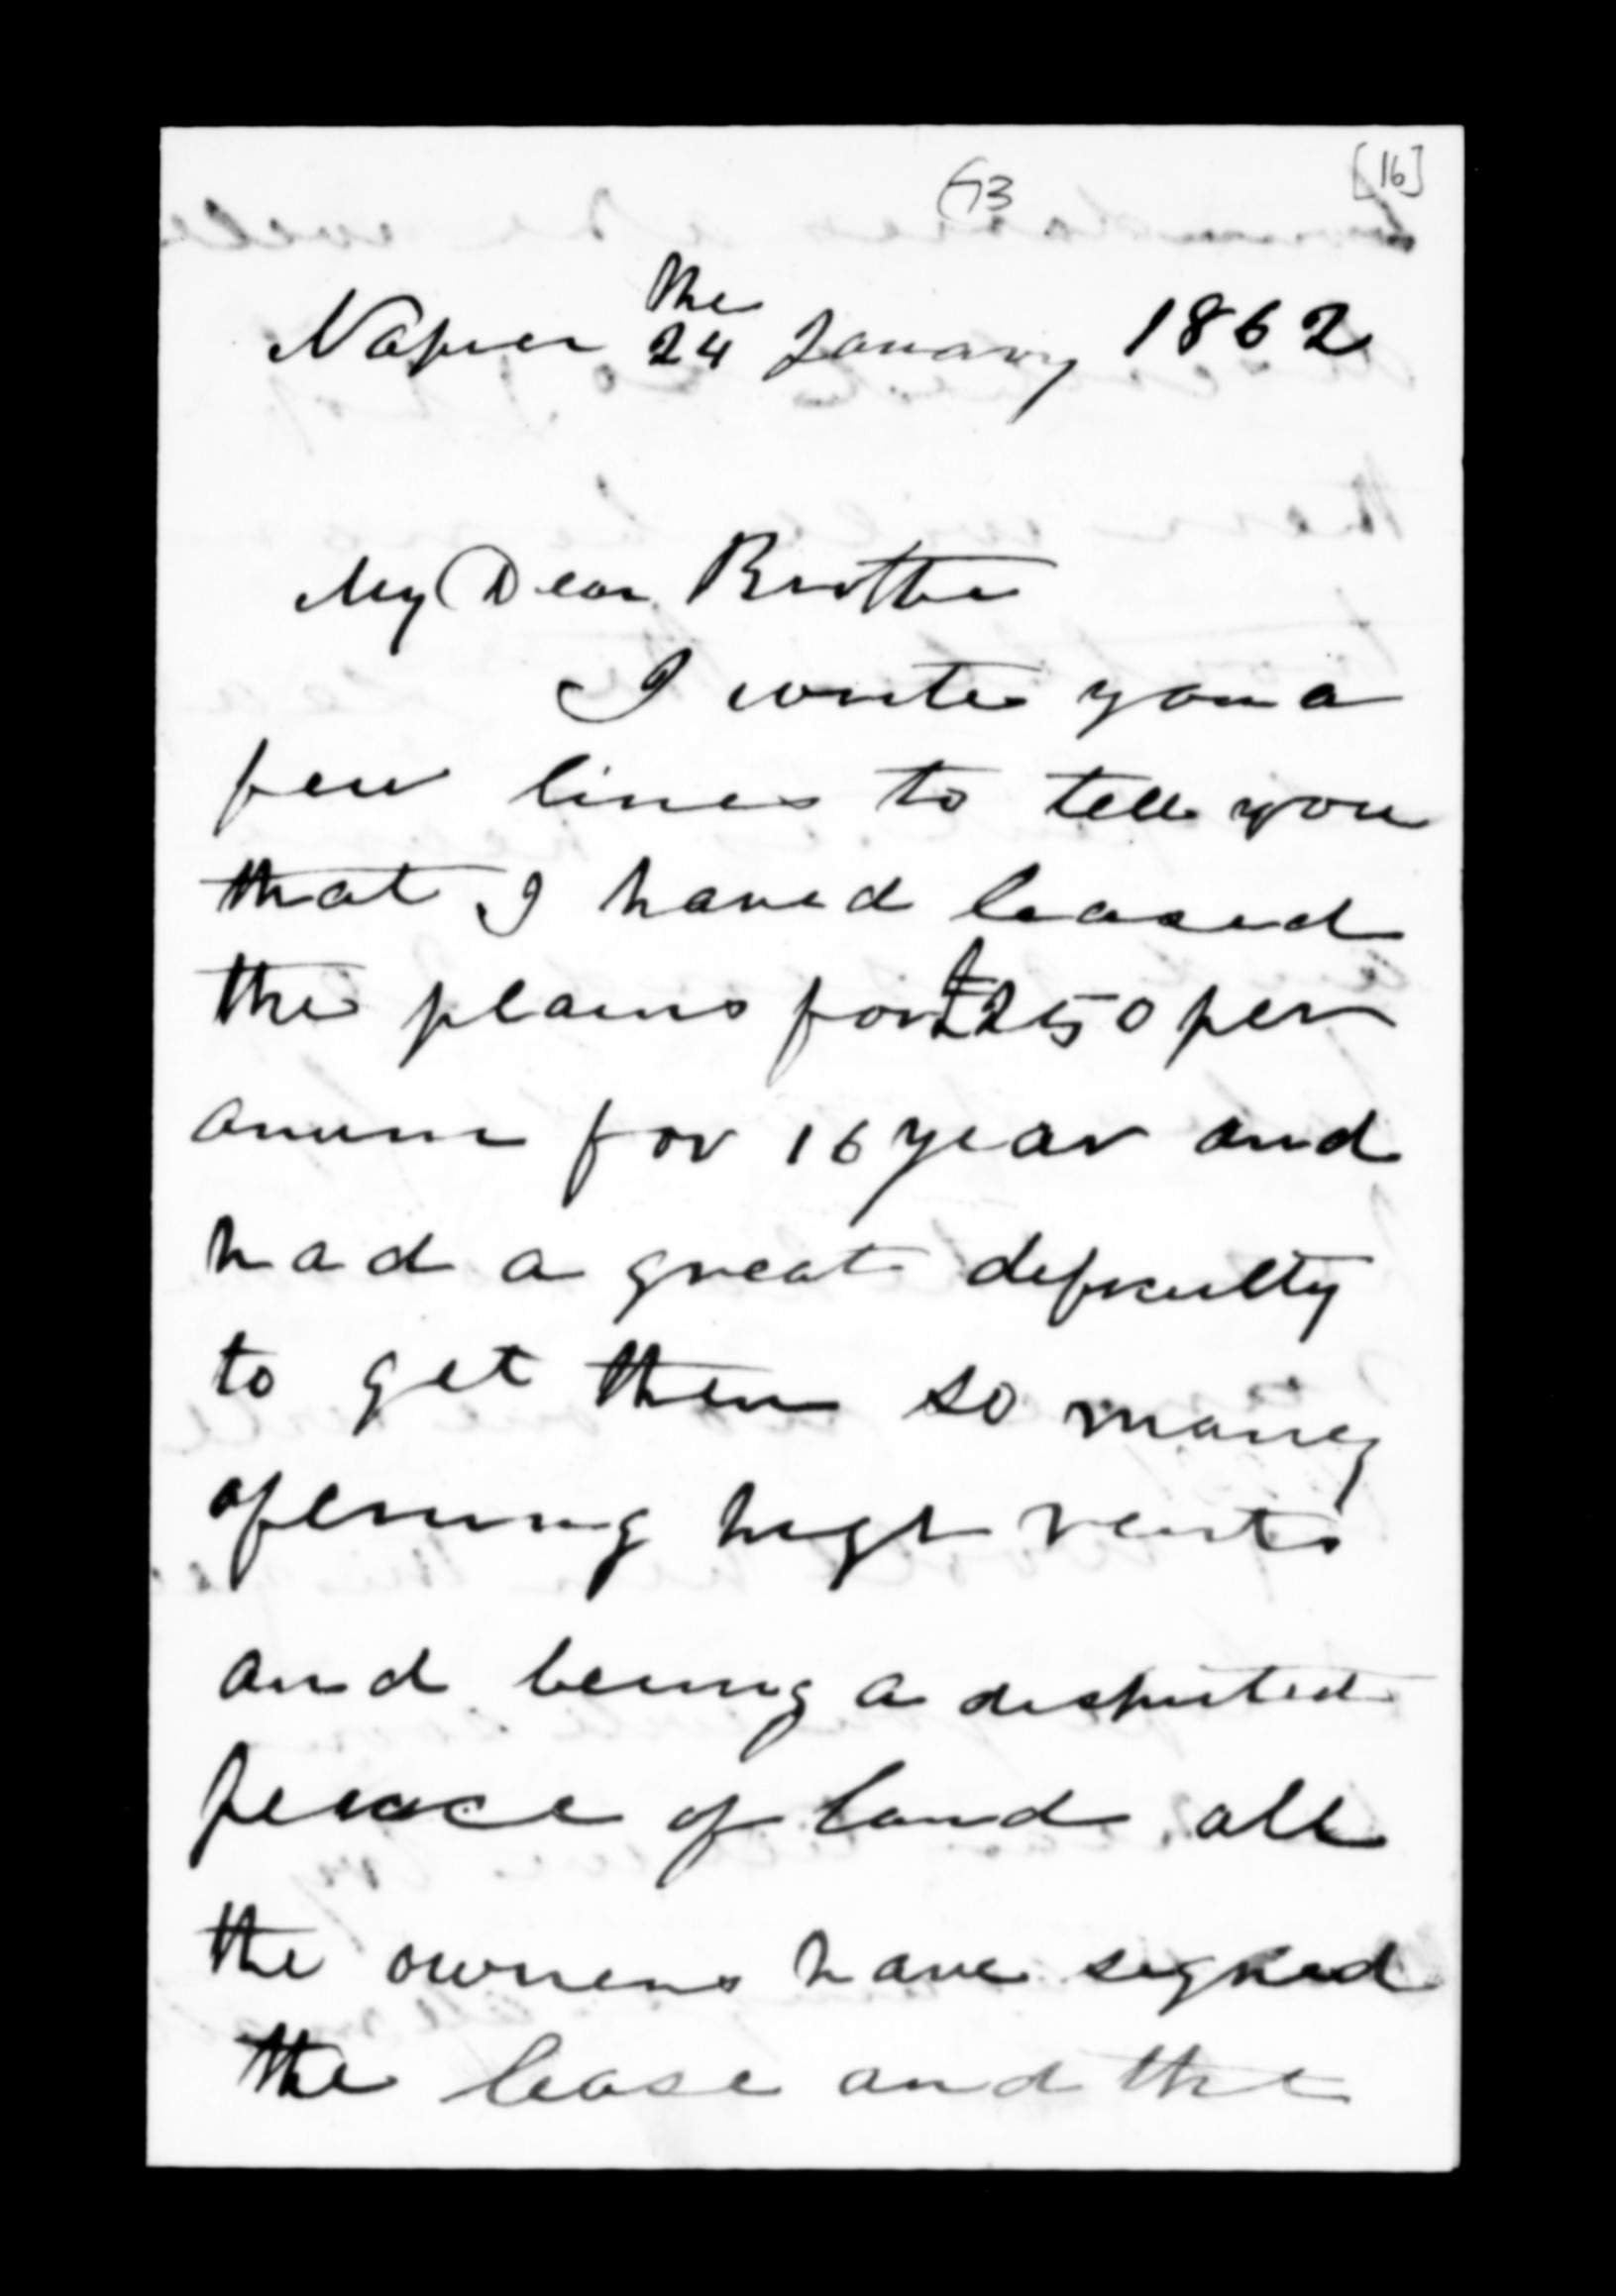 73 [16]
the
Napier 24 January 1862
My Dear Brother
I write you a
few lines to tell you
that I haved leased
the plains for £250 per
anum for 16 year and
had a great deficulty
to get them so many
opening high rents
and being a disputed
peace of land all
the owners have signed
the lease and the